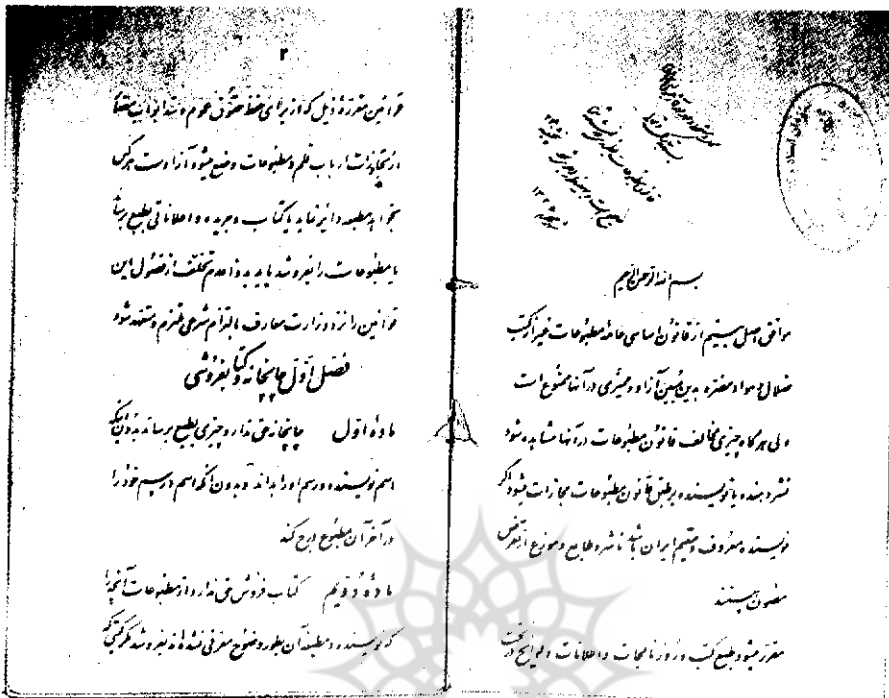 بسم الله الرحمن الرحیم
موافق اصل بیستم از قانون اساسی عامه مطبوعات غیر از کتب
ضلال و مواد مضره بدین مبین آزاد و ممیزی در آنها ممنوع است
ولی هرگاه چیزی مخالف قانون مطبوعات در آنها مشاهده شود
نشر دهنده یا نویسنده بر طبق قانون مطبوعات مجازات میشود اگر
نویسنده معروف و مقیم ایران باشد ناشر و طابع و موزع از تعرض
مصون هستند
مقرر میشود طبع کتب و روزنامجات و اعلانات و لوایح در تحت
۲
قوانین مقرره ذیل که از برای حفظ حقوق عموم و سد ابواب
از تجاوزات ارباب قلم و مطبوعات وضع میشود آزاد است هر کس
بخواهد مطبعه دایر نماید یا کتاب و جریده و اعلاناتی بطبع برساند
یا مطبوعات را بفروشد باید بدوا عدم تخلف از فصول این
قوانین را نزد وزارت معارف بالتزام شرعی ملتزم و متعهد شود
فصل اول چاپخانه و کتابفروشی
ماده اول چاپخانه حق ندارد چیزی بطبع برساند بدون اینکه
اسم نویسنده و رسم او را بداند و بدون آنکه اسم و رسم خود را
در آخر آن مطبوع درج کند
ماده دویم کتاب فروش حق ندارد از مطبوعات آنچه را
که نویسنده و مطبعه آن بطور وضوح معرفی نشده اند بفروشد مگر کتبی که